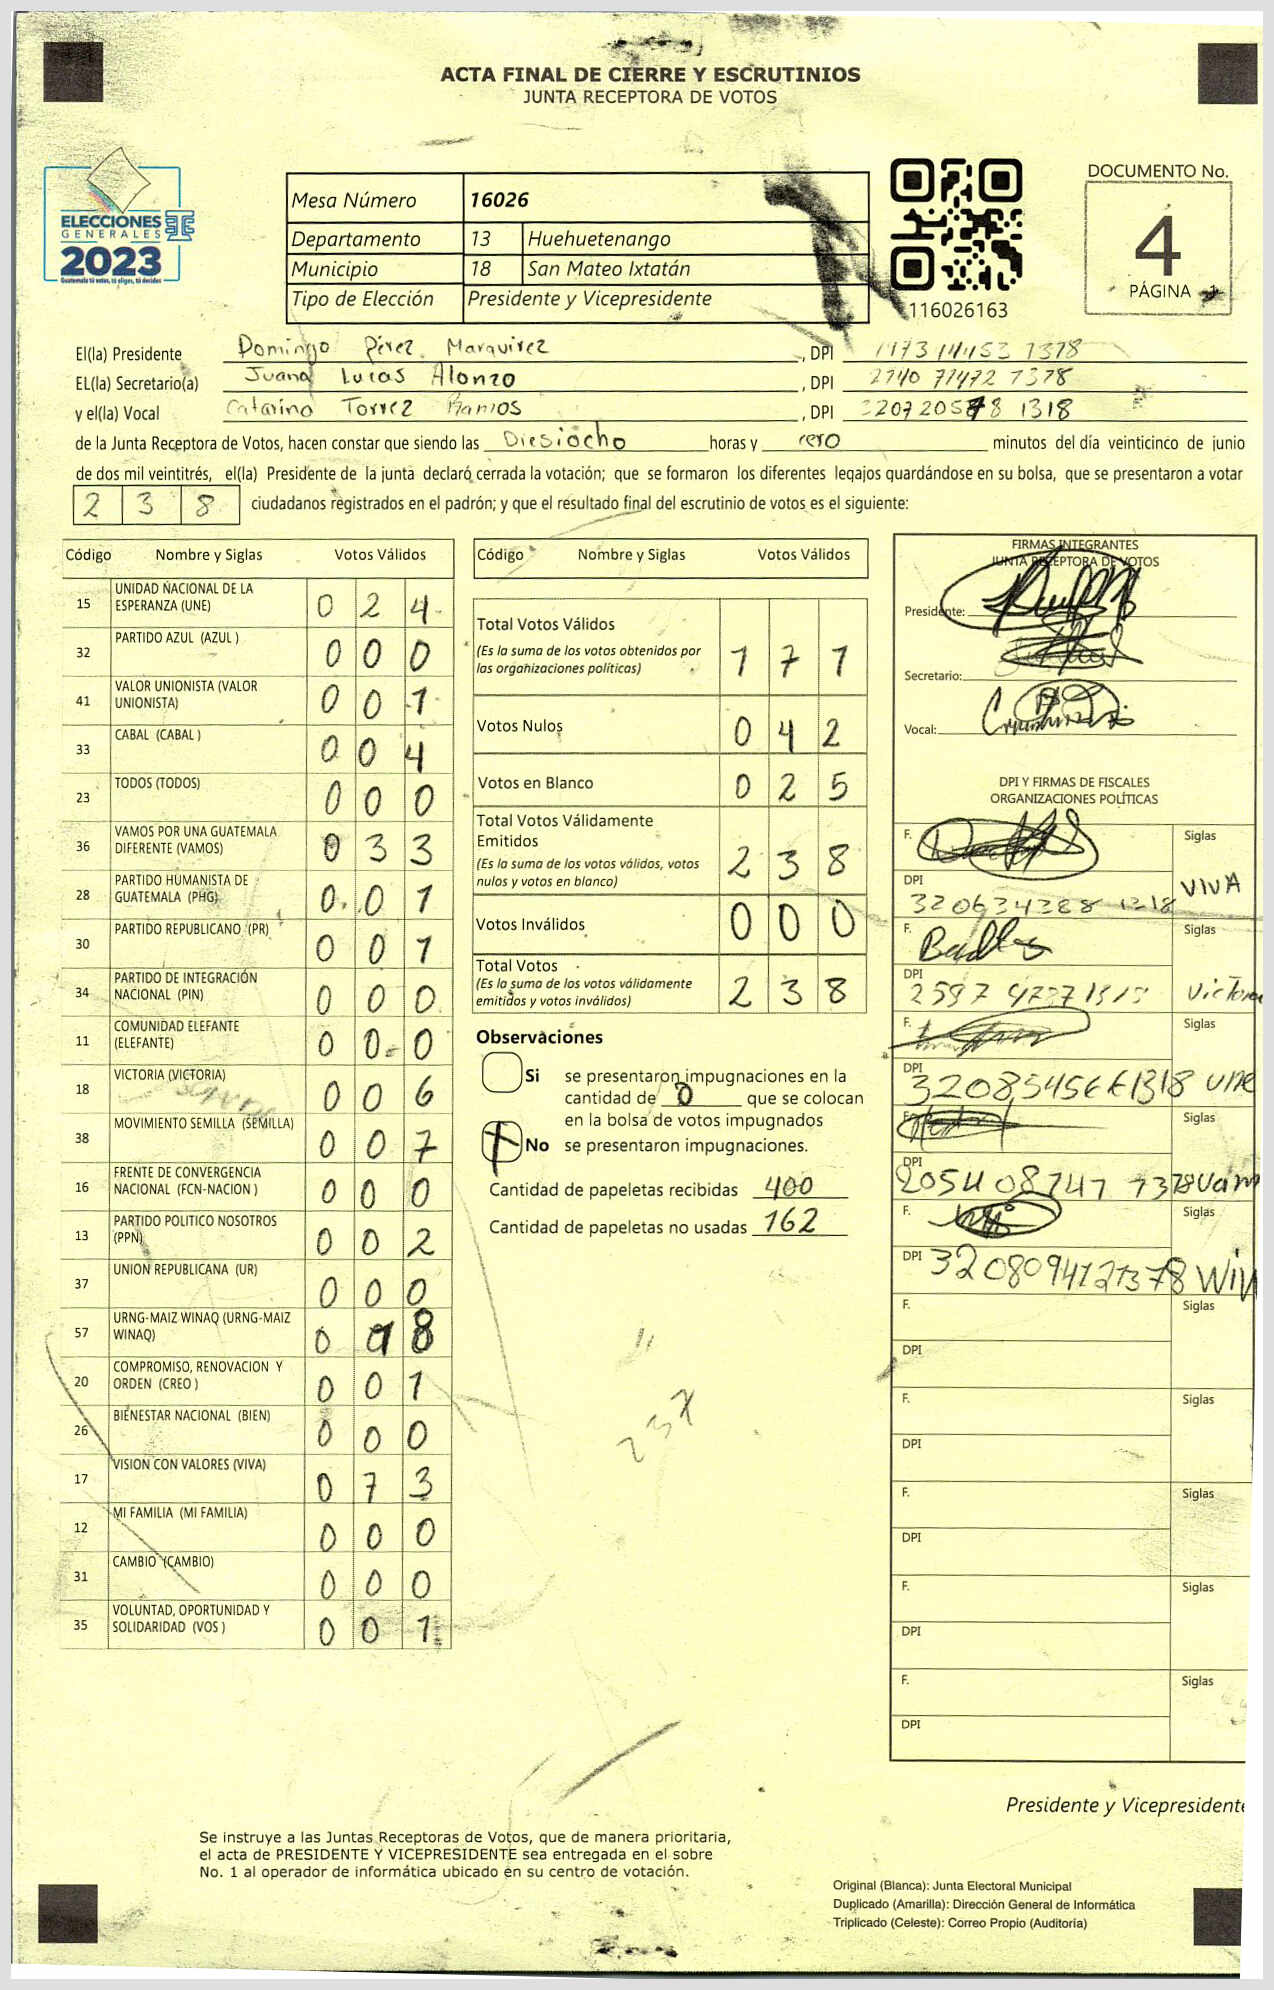 ACTA FINAL DE CIERRE Y ESCRUTINIOS
JUNTA RECEPTORA DE VOTOS
ELECCIONES
GENERALES
2023
Guatemala tú votas, tú eliges, tú decides
Mesa Número 16026
Departamento 13 Huehuetenango
Municipio 18 San Mateo Ixtatán
Tipo de Elección Presidente y Vicepresidente
116026163
DOCUMENTO No.
4
PÁGINA 1
El(la) Presidente Domingo Pérez Marquirez, DPI
EL(la) Secretario(a) Juana Lucas Alonzo, DPI
y el(la) Vocal Catarino Torrez Ramos, DPI
de la Junta Receptora de Votos, hacen constar que siendo las Diesiocho horas y cero minutos del día veinticinco de junio
de dos mil veintitrés, el(la) Presidente de la junta declaró cerrada la votación; que se formaron los diferentes legajos quardándose en su bolsa, que se presentaron a votar
2 3 8 ciudadanos registrados en el padrón; y que el resultado final del escrutinio de votos es el siguiente:
Código Nombre y Siglas Votos Válidos
15 UNIDAD NACIONAL DE LA ESPERANZA (UNE) 0 2 4
32 PARTIDO AZUL (AZUL ) 0 0 0
41 VALOR UNIONISTA (VALOR UNIONISTA) 0 0 1
33 CABAL (CABAL ) 0 0 4
23 TODOS (TODOS) 0 0 0
36 VAMOS POR UNA GUATEMALA DIFERENTE (VAMOS) 0 3 3
28 PARTIDO HUMANISTA DE GUATEMALA (PHG) 0 0 1
30 PARTIDO REPUBLICANO (PR) 0 0 1
34 PARTIDO DE INTEGRACIÓN NACIONAL (PIN) 0 0 0
11 COMUNIDAD ELEFANTE (ELEFANTE) 0 0 0
18 VICTORIA (VICTORIA) 0 0 6
38 MOVIMIENTO SEMILLA (SEMILLA) 0 0 7
16 FRENTE DE CONVERGENCIA NACIONAL (FCN-NACION ) 0 0 0
13 PARTIDO POLITICO NOSOTROS (PPN) 0 0 2
37 UNION REPUBLICANA (UR) 0 0 0
57 URNG-MAIZ WINAQ (URNG-MAIZ WINAQ) 0 1 8
20 COMPROMISO, RENOVACION Y ORDEN (CREO ) 0 0 1
26 BIENESTAR NACIONAL (BIEN) 0 0 0
17 VISION CON VALORES (VIVA) 0 7 3
12 MI FAMILIA (MI FAMILIA) 0 0 0
31 CAMBIO (CAMBIO) 0 0 0
35 VOLUNTAD, OPORTUNIDAD Y SOLIDARIDAD (VOS ) 0 0 1
Código Nombre y Siglas Votos Válidos
Total Votos Válidos 1 7 1
(Es la suma de los votos obtenidos por
las organizaciones políticas)
Votos Nulos 0 4 2
Votos en Blanco 0 2 5
Total Votos Válidamente
Emitidos 2 3 8
(Es la suma de los votos válidos, votos
nulos y votos en blanco)
Votos Inválidos 0 0 0
Total Votos 2 3 8
(Es la suma de los votos válidamente
emitidos y votos inválidos)
Observaciones
Si se presentaron impugnaciones en la
cantidad de 0 que se colocan
en la bolsa de votos impugnados
No se presentaron impugnaciones.
Cantidad de papeletas recibidas 400
Cantidad de papeletas no usadas 162
11
237
FIRMAS INTEGRANTES
JUNTA RECEPTORA DE VOTOS
Presidente:
Secretario:
Vocal:
DPI Y FIRMAS DE FISCALES
ORGANIZACIONES POLÍTICAS
F. Siglas
DPI VIVA
F. Siglas
DPI Victoria
F. Siglas
DPI une
F. Siglas
DPI
F. Siglas
DPI
F. Siglas
DPI
F. Siglas
DPI
F. Siglas
DPI
F. Siglas
DPI
F. Siglas
DPI
Presidente y Vicepresidente
Se instruye a las Juntas Receptoras de Votos, que de manera prioritaria,
el acta de PRESIDENTE Y VICEPRESIDENTE sea entregada en el sobre
No. 1 al operador de informática ubicado en su centro de votación.
Original (Blanca): Junta Electoral Municipal
Duplicado (Amarilla): Dirección General de Informática
Triplicado (Celeste): Correo Propio (Auditoría)